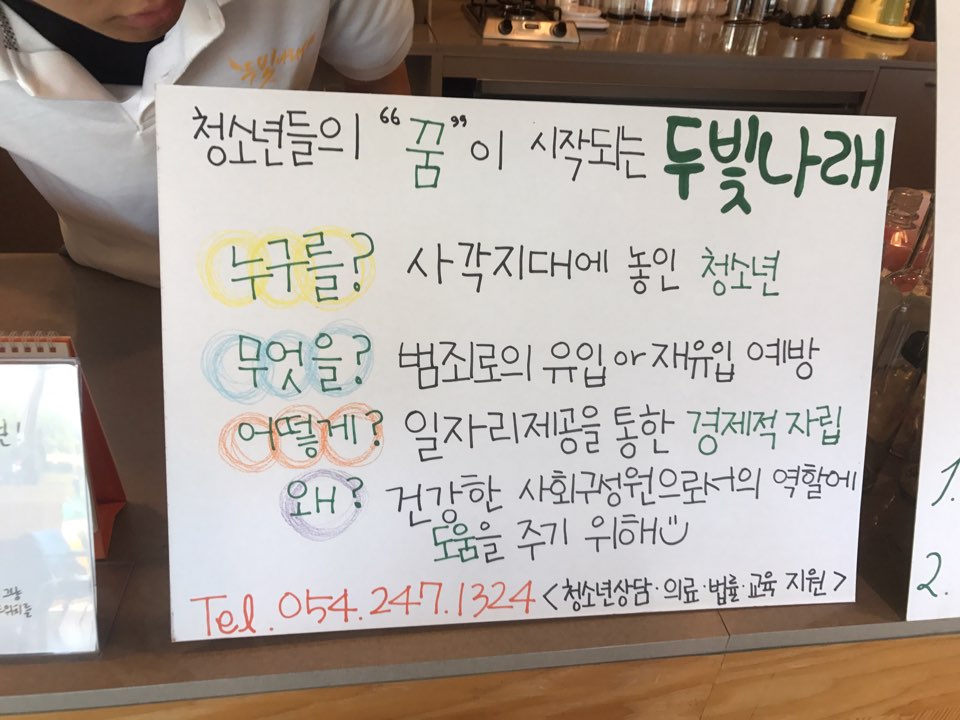 두빛나래
청소년들의 “꿈”이 시작되는 두빛나래
누구를? 사각지대에 놓인 청소년
무엇을? 범죄로의 유입 or 재유입 예방
어떻게? 일자리제공을 통한 경제적 자립
왜? 건강한 사회구성원으로서의 역할에
도움을 주기 위해
Tel. 054.247.1324 <청소년상담·의료·법률·교육 지원>
1.
2.